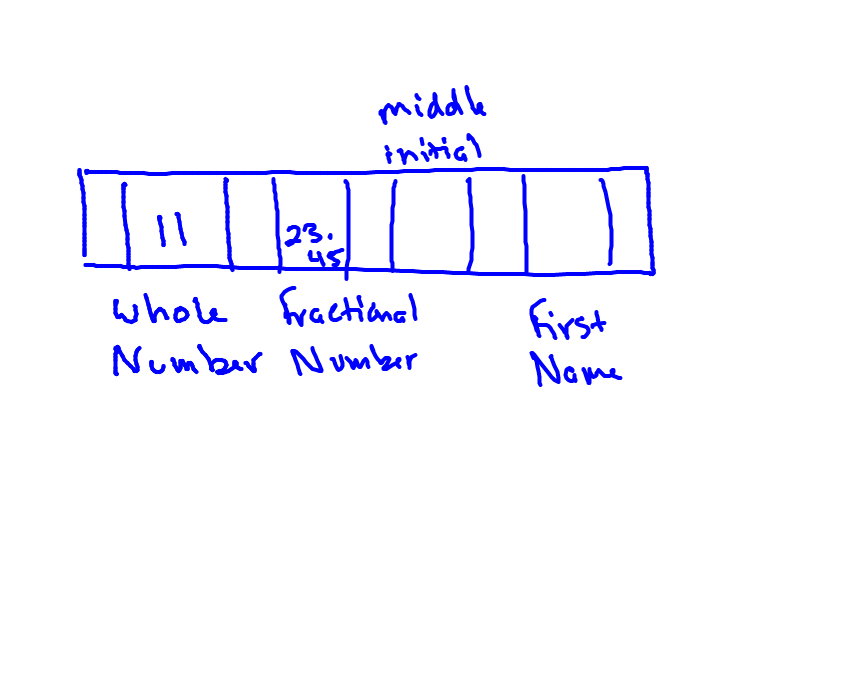 middle
initial
11
23.
45
Whole
Number
Fractional
Number
First
Name